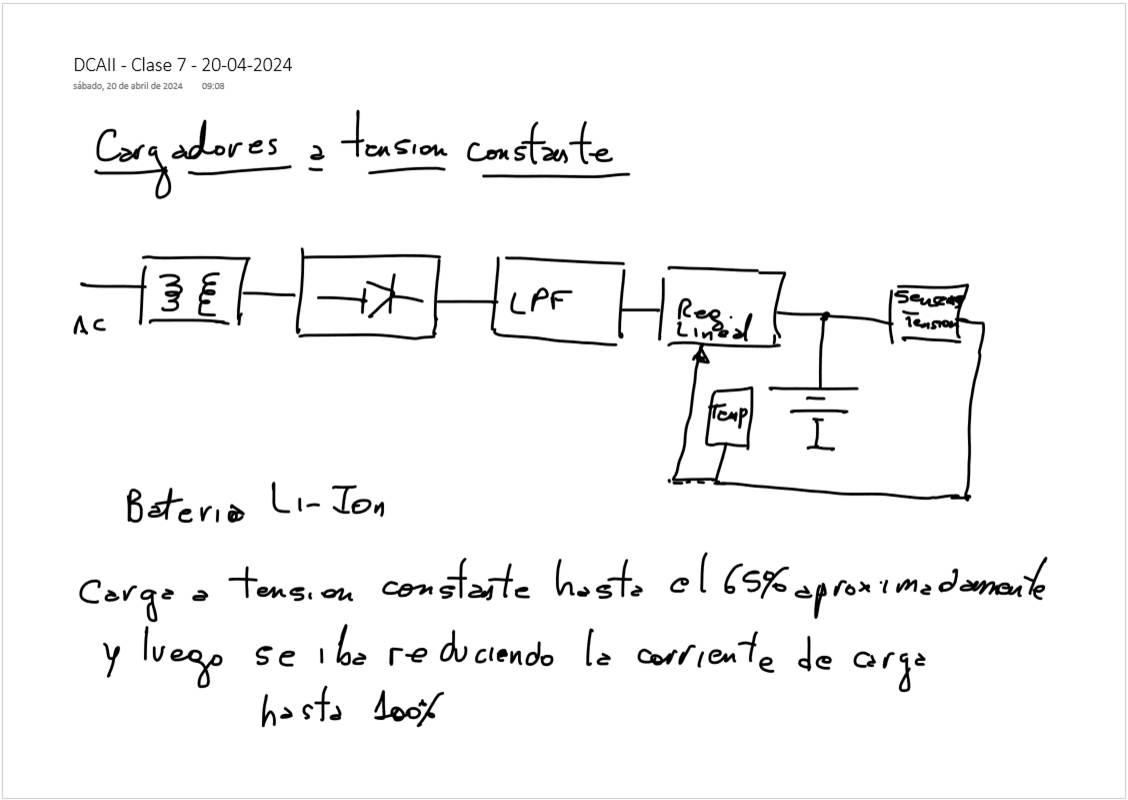 DCAII - Clase 7 - 20-04-2024
sábado, 20 de abril de 2024 09:08
Cargadores a tension constante
AC
LPF
Reg.
Lineal
Sensado
Tension
Temp
Bateria Li-Ion
Carga a tension constante hasta el 65% aproximadamente
y luego se iba reduciendo la corriente de carga
hasta 100%